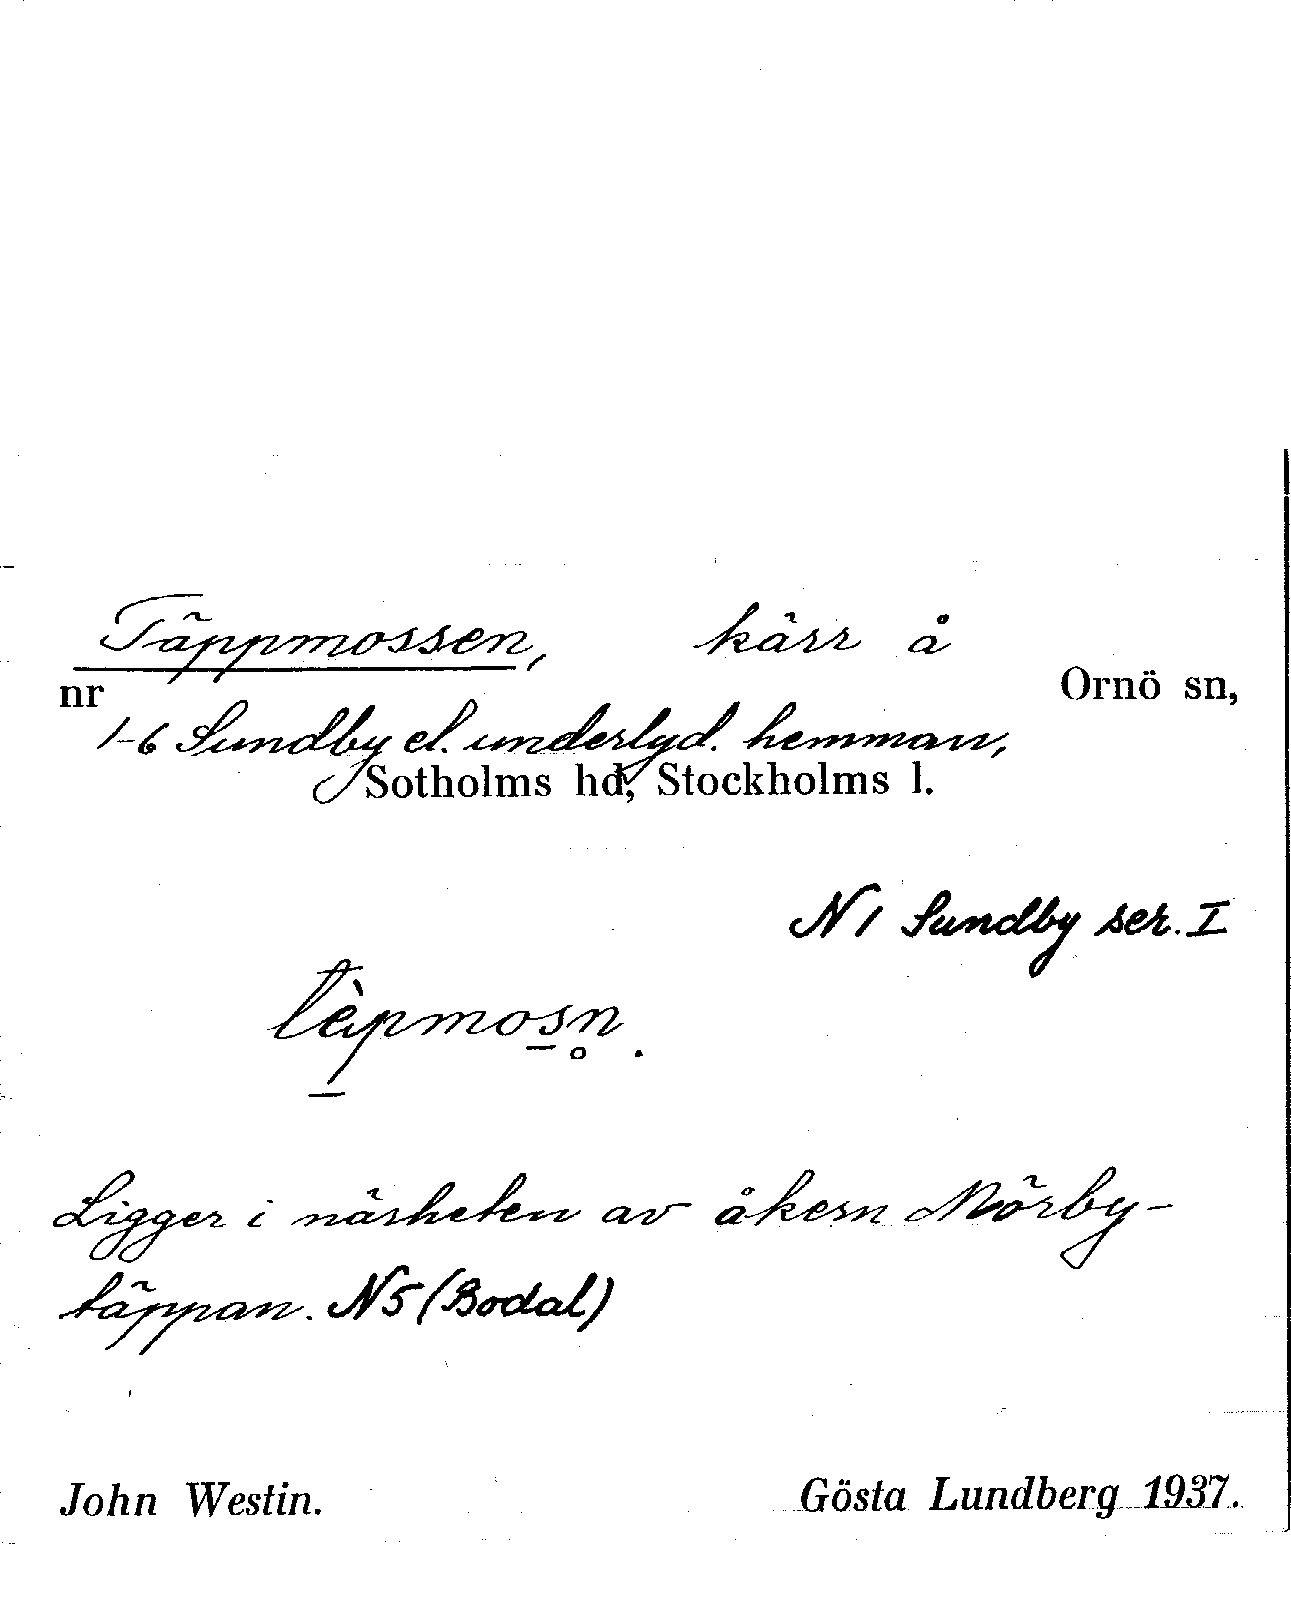 Täppmossen, kärr å
nr Ornö sn,
1-6 Sundby el. underlyd. hemman,
Sotholms hd, Stockholms l.
N 1 Sundby ser. I
tèpmosn̥.
Ligger i närheten av åkern Mörby-
täppan. N5 (Bodal)
John Westin. Gösta Lundberg 1937.